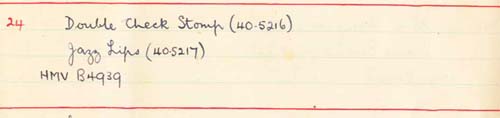 24 Double Check Stomp (40-5216)
Jazz Lips (40-5217)
HMV B4939